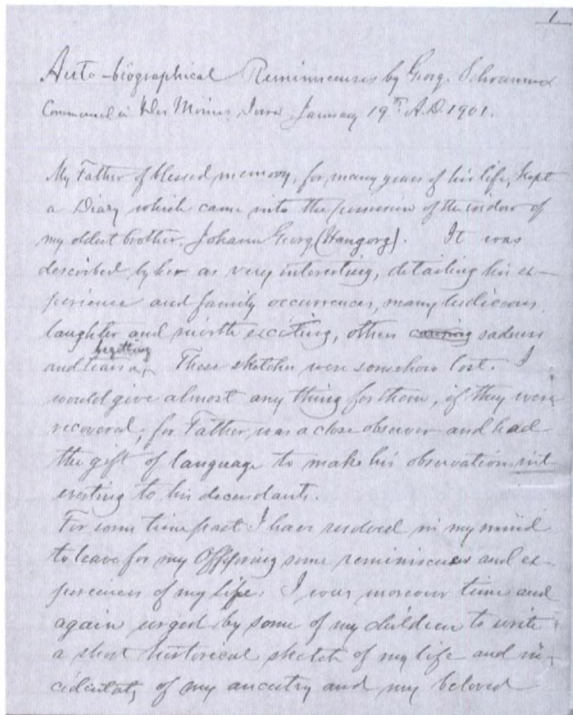 1
Auto-biographical Reminiscenses by Georg. Schramm
Commenced in Des Moines, Iowa January 19th A.D. 1901.
My Father of blessed memory, for many years of his life, kept
a Diary which came into the possession of the widow of
my oldest brother. Johann Georg (Hangorg). It was
described by her as very interesting, detailing his ex-
perience and family occurrences, many ludicrous
laughter and mirth exciting, others causing sadness
begetting
and tears. These sketches were somehow lost. I
would give almost any thing for them, if they were
recovered, for Father, was a close observer and had
the gift of language to make his observations int
eresting to his decendants.
For some time past I have resolved in my mind
to leave for my Offspring some reminiscences and ex-
periences of my life. I was moreover time and
again urged by some of my children to write
a short historical sketch of my life and in-
cidentaly of my ancestry and my beloved